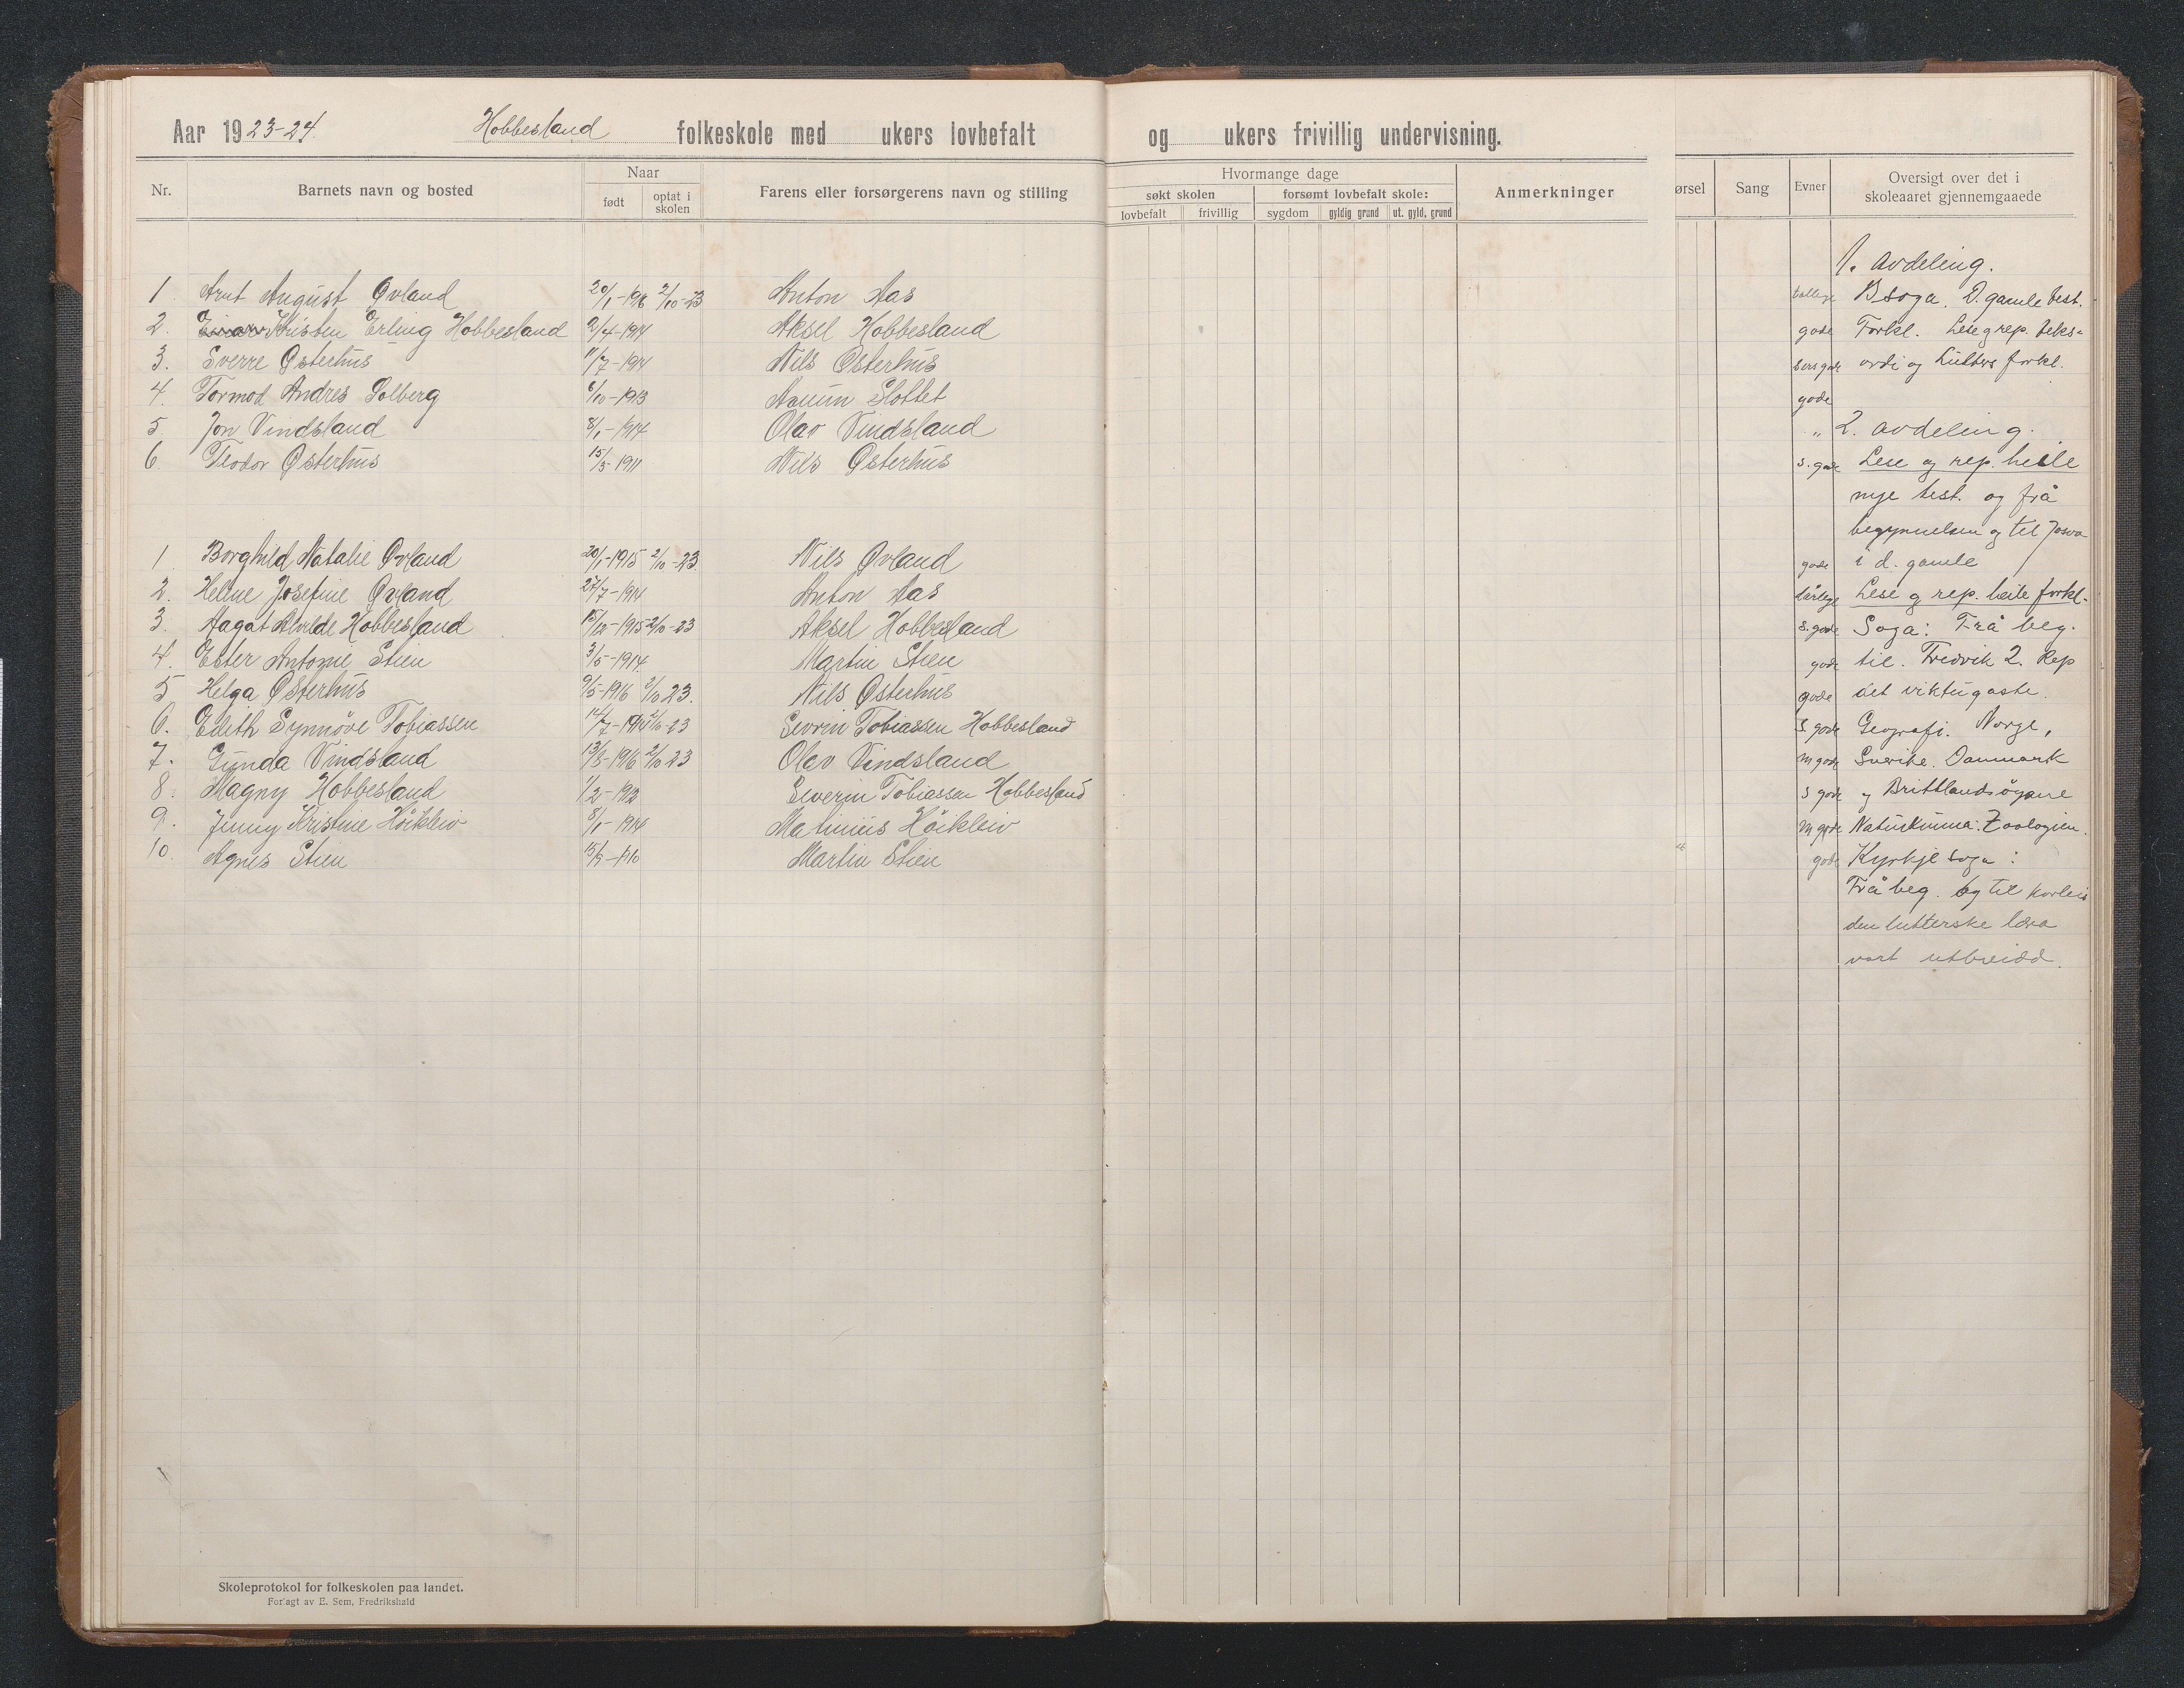 Aar 1923-24. Hobbesland folkeskole med ukers lovbefalt og ukers frivillig undervisning.
Nr. Barnets navn og bosted Naar født optat i skolen Farens eller forsørgerens navn og stilling
Hvormange dage
søkt skolen forsømt lovbefalt skole: Anmerkninger
lovbefalt frivillig sygdom gyldig grund ut. gyld. grund
1 Arnt August Øvland 20/1-1916 2/10-23 Anton Aas
2. Einar Kristen Erling Hobbesland 9/4-1914 Aksel Hobbesland
3. Sverre Østerhus 11/7-1914 Nils Østerhus
4. Tormod Andres Solberg 6/10-1913 Slottet
5 Jon Vindsland 8/1-1914 Olav Vindsland
6. Teodor Østerhus 15/5-1911 Nils Østerhus
1 Borghild Natalie Øvland 20/1-1915 2/10-23. Nils Øvland
2. Helene Josefine Øvland 27/7-1914 Anton Aas
3. Aagot Alvilde Hobbesland 15/12-1915 2/10-23 Aksel Hobbesland
4. Ester Antonie Stien 3/5-1914. Martin Stien
5 Helga Østerhus 9/5-1916 2/10 23. Nils Østerhus
6. Edith Synnöve Tobiassen 2/10-23 Sevrin Tobiassen Hobbesland
7. Gunda Vindsland 13/8-1916 2/10 23 Olav Vindsland
8. Magny Hobbesland 1/2-1912 Severin Tobiassen Hobbesland
9. Jenny Kristine Höiklev 8/1-1914 Matinius Höikleiv
10. Agnes Stien Martin Stien
Skoleprotokol for folkeskolen paa landet.
Forlagt av E. Sem, Fredrikshald
ørsel Sang Evner Oversigt over det i
skoleaaret gjennemgaaede
1. avdeling.
Bsoga. D. gamle test.
gode Forkl. Lese g rep. teks-
sers gode ordi og Lutters forkl.
gode
" 2. avdeling.
s. gode Lese og rep. heile
nye test. og frå
begynnelsen og til Josva
gode i d. gamle
dårlege Lese g rep. heile forkl.
s. gode Soga: Frå beg.
gode til. Fredrik 2. Rep
gode det viktugaste.
s gode Geografi. Norge,
m gode Sverike. Danmark
s gode og Brittlandsöyane
m gode Naturkunna: Zoologien.
gode Kyrkjesoga:
Frå beg. og til korleis
den lutterske læra
vart utbreidd.